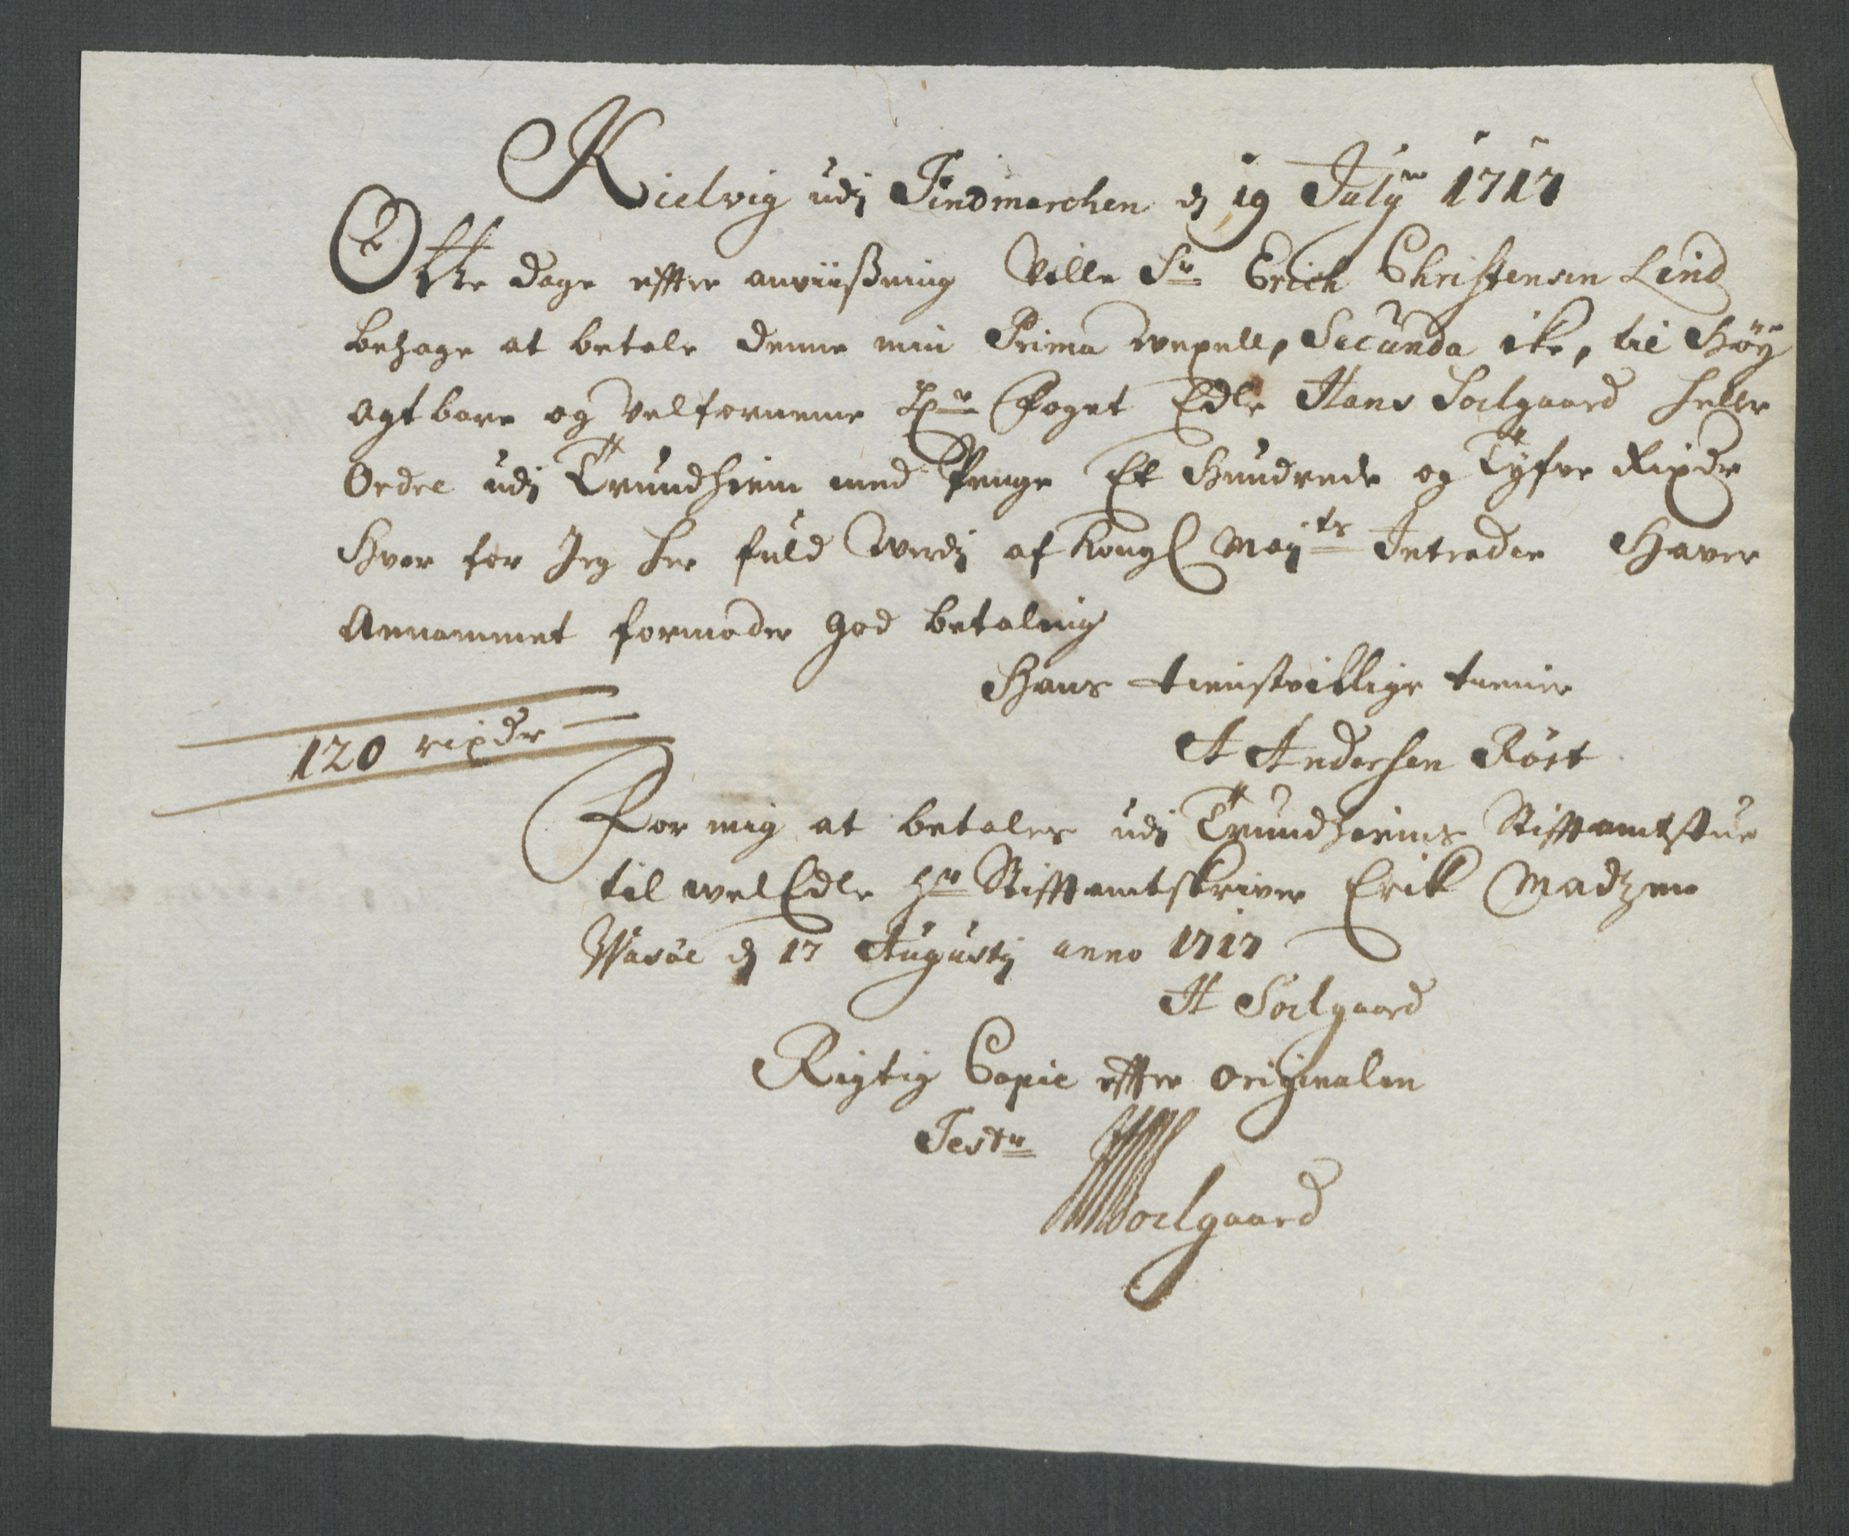 Kielvig udj Findmarchen dj 19 Julij 1717
Otte dage effter anviißning Ville Sr Erich Christensen Lind
behage at betale denne min Prima wexell, Secunda ike, til Høy
agtbare og velfornemme Hr Foget Edle Hans Soelgaard heller
Ordre udj Trundhiem med Penge Et Hundrede og Tyfve Rixdr
Hvor for Jeg her fuld werdj af Kongl Mayts Intrader Haver
Annammet formoder god betaling
Hans tienstvillige tiener
A Andersen Röst
120 rixdr
For mig at betales udj Trundhiems Stifftamtstue
til welEdle Hr Stifftamtskriver Erik Madtzen
Wasöe dj 17 Augustij anno 1717
H Soelgaard
Rigtig Copie effter originalen
Tester
HSoelgaard